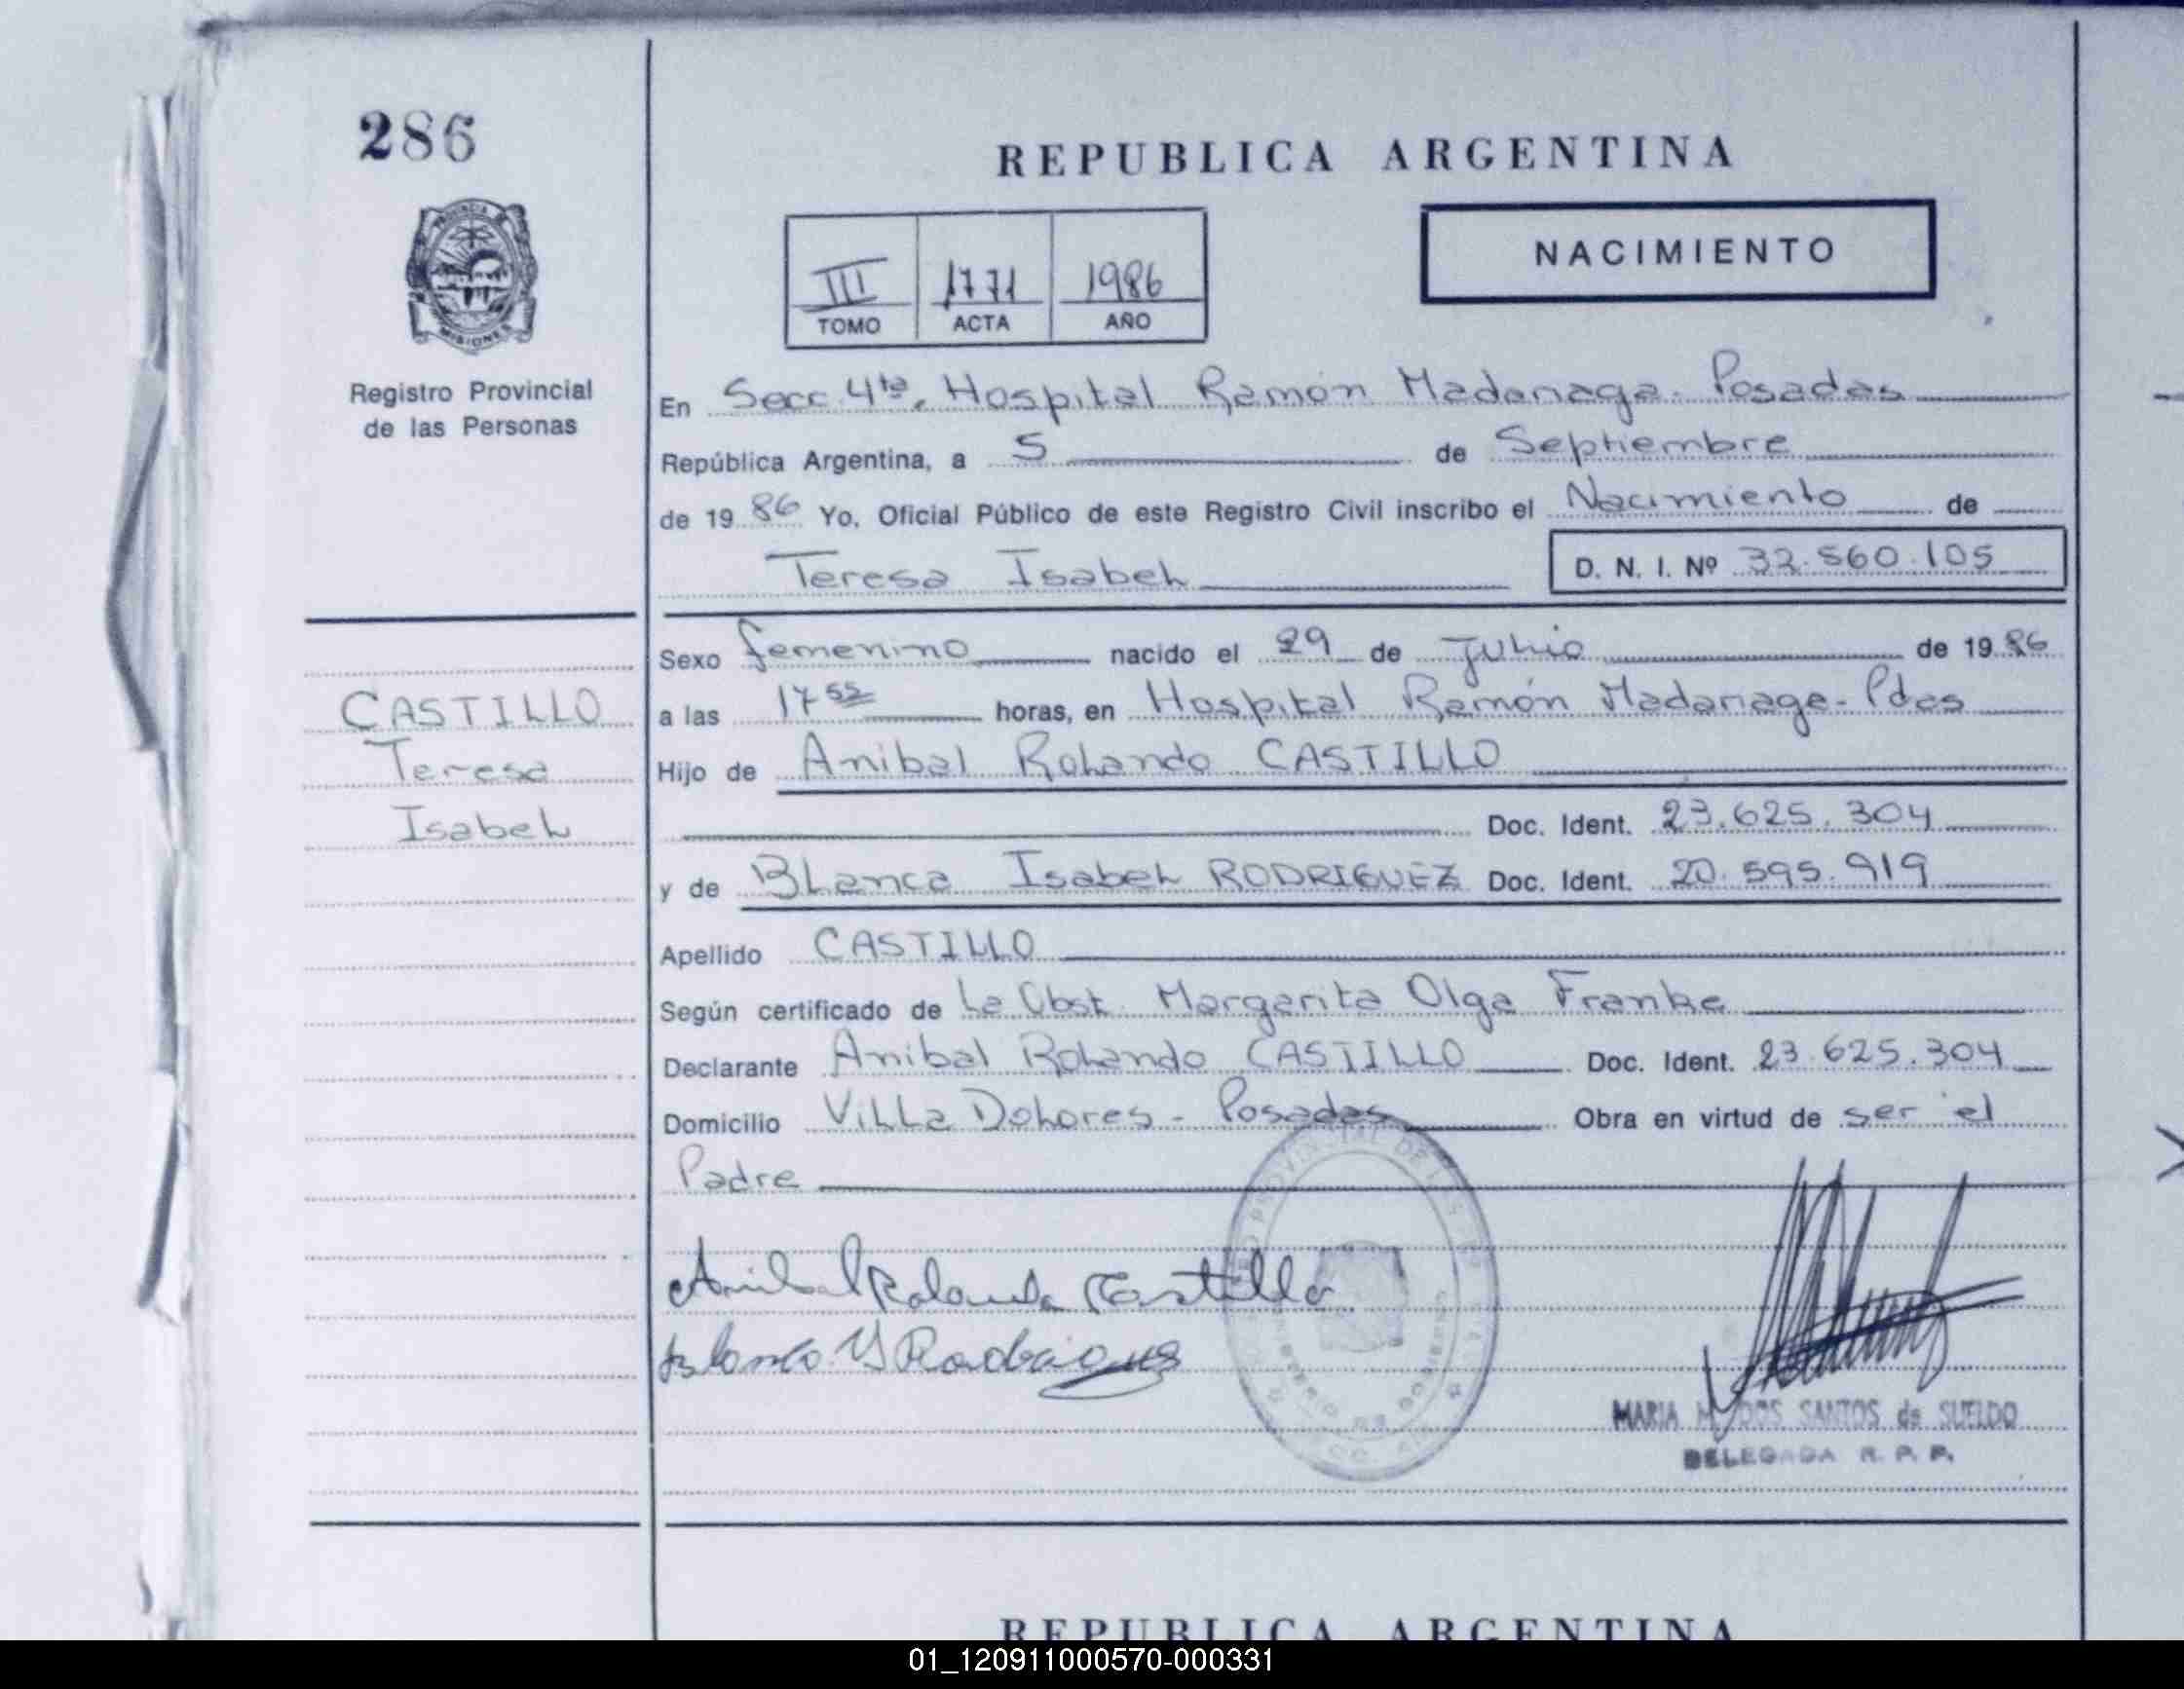 286
REPUBLICA ARGENTINA
NACIMIENTO
III 1771 1986
TOMO ACTA AÑO
PROVINCIA DE MISIONES
Registro Provincial
de las Personas
En Secc. 4ta. Hospital Ramón Madariaga - Posadas
República Argentina, a 5 de Septiembre
de 1986 Yo, Oficial Público de este Registro Civil inscribo el Nacimiento de
Teresa Isabel D. N. I. Nº 32.560.105
Sexo femenino nacido el 29 de Julio de 1986
a las 17 55 horas, en Hospital Ramón Madariaga - Pdas
Hijo de Anibal Rolando CASTILLO
Doc. Ident. 23.625.304
y de Blanca Isabel RODRIGUEZ Doc. Ident. 20.595.919
Apellido CASTILLO
Según certificado de La Obst. Margarita Olga Franke
Declarante Anibal Rolando CASTILLO Doc. Ident. 23.625.304
Domicilio Villa Dolores - Posadas Obra en virtud de ser el
Padre
CASTILLO
Teresa
Isabel
Anibal Rolando Castillo
Blanca Y Rodriguez
MARIA M. DOS SANTOS de SUELDO
DELEGADA R. P. P.
REPUBLICA ARGENTINA
01_120911000570-000331